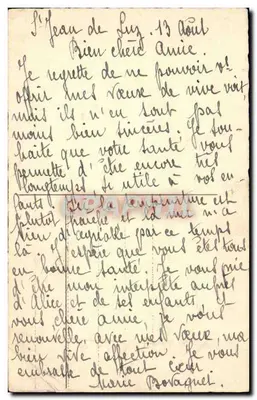 St Jean de Luz, 13 Août
Bien chère Amie.
Je regrette de ne pouvoir vs
offrir mes vœux de vive voix,
mais ils n'en sont pas
moins bien sincères. Je sou-
haite que votre santé vous
permette d'être encore très
longtemps si utile à vos en-
fants. Ici
plutôt fraîche la mer n'a
rien d'agréable par ce temps
là. J'espère que vous êtes tous
en bonne santé. Je vous prie
d'être mon interprète auprès
d'Alice et de ses enfants et
vous chère amie, je vous
renouvelle, avec mes vœux, ma
bien vive affection. Je vous
embrasse de tout cœur
Marie